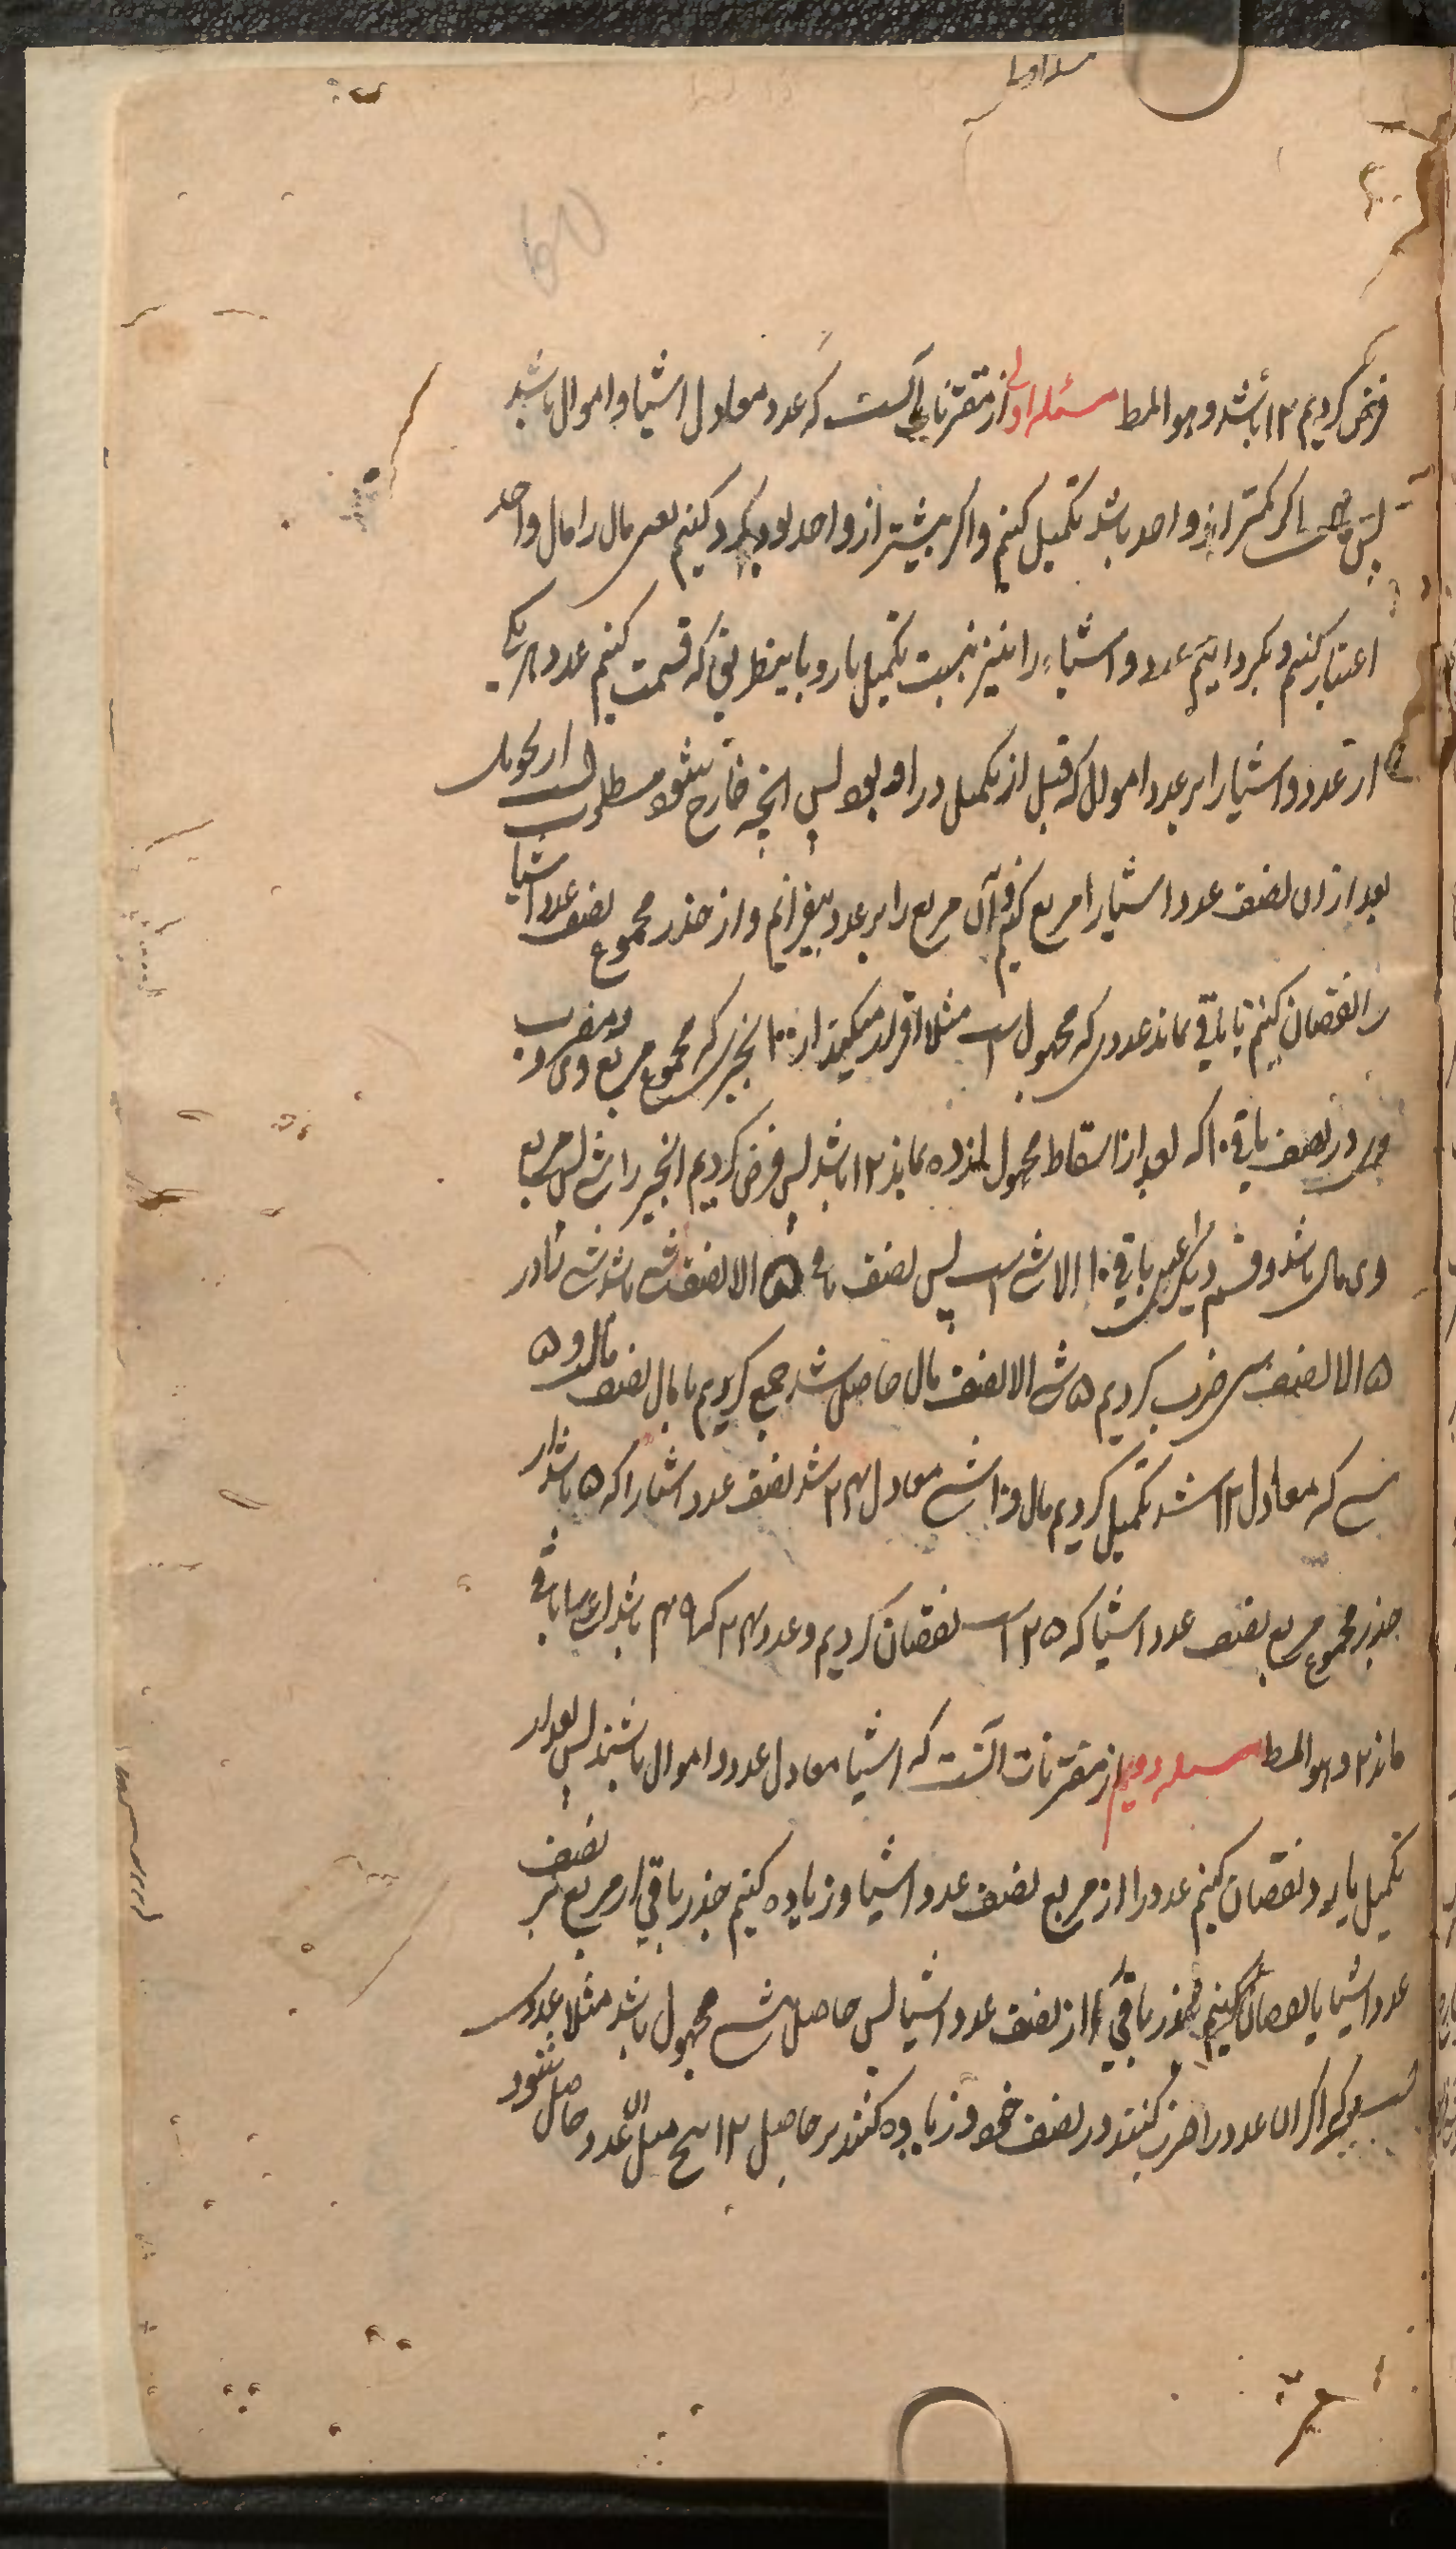 فرض کردیم ۱۲ باشد و هو المط مسئله اولی از مقترنات آنست که عدد معادل اشیا و اموال باشد
پس مال اگر کمتر از واحد باشد تکمیل کنیم و اگر بیشتر از واحد بود رد کنیم یعنی مال را مال واحد
اعتبار کنیم و بگردانیم عدد و اشیاء را نیز بنسبت تکمیل یا رد باینطریق که قسمت کنیم عدد هر یک
از عدد و اشیا را بر عدد اموال که قبل از تکمیل و رد او بود پس آنچه خارج بشود مطلوب از تحویل
بعد از ان نصف عدد اشیا را مربع کنیم و آن مربع را بر عدد بیفزائیم و از جذر مجموع نصف عدد اشیا
را نقصان کنیم تا باقی بماند عددی که مجهول است مثلا اقرار میکند از ۱۰ بچیزی که مجموع مربع وی و مضرب
وی در نصف باقی ۱۰ که بعد از اسقاط مجهول از ده بماند ۱۲ باشد پس فرض کردیم آنچیز را شی پس مربع
وی مال باشد و قسم دیگر اعنی باقی ۱۰ الا شی است پس نصف باقی ۵ الا نصف شی باشد شی را در
۵ الا نصف شی ضرب کردیم ۵ شی الا نصف مال حاصل شد جمع کردیم با مال نصف مال و ۵
شی که معادل ۱۲ شد تکمیل کردیم مال و ۱۰ شی معادل ۲۴ شد نصف عدد اشیا را که ۵ باشد از
جذر مجموع مربع نصف عدد اشیا که ۲۵ است نقصان کردیم و عدد ۲۴ که ۴۹ باشد باقی
ماند ۲ و هو المط مسئله دویم از مقترنات آنست که اشیا معادل عدد و اموال باشند پس بعد از
تکمیل یا رد نقصان کنیم عدد را از مربع نصف عدد اشیا و زیاده کنیم جذر باقی از مربع بر نصف
عدد اشیا یا نقصان کنیم جذر باقی را از نصف عدد اشیا پس حاصل شی مجهول باشد مثلا عددی
که اگر آن عدد را ضرب کنند در نصف خود و زیاده کنند بر حاصل ۱۲ پنج مثل آن عدد حاصل شود